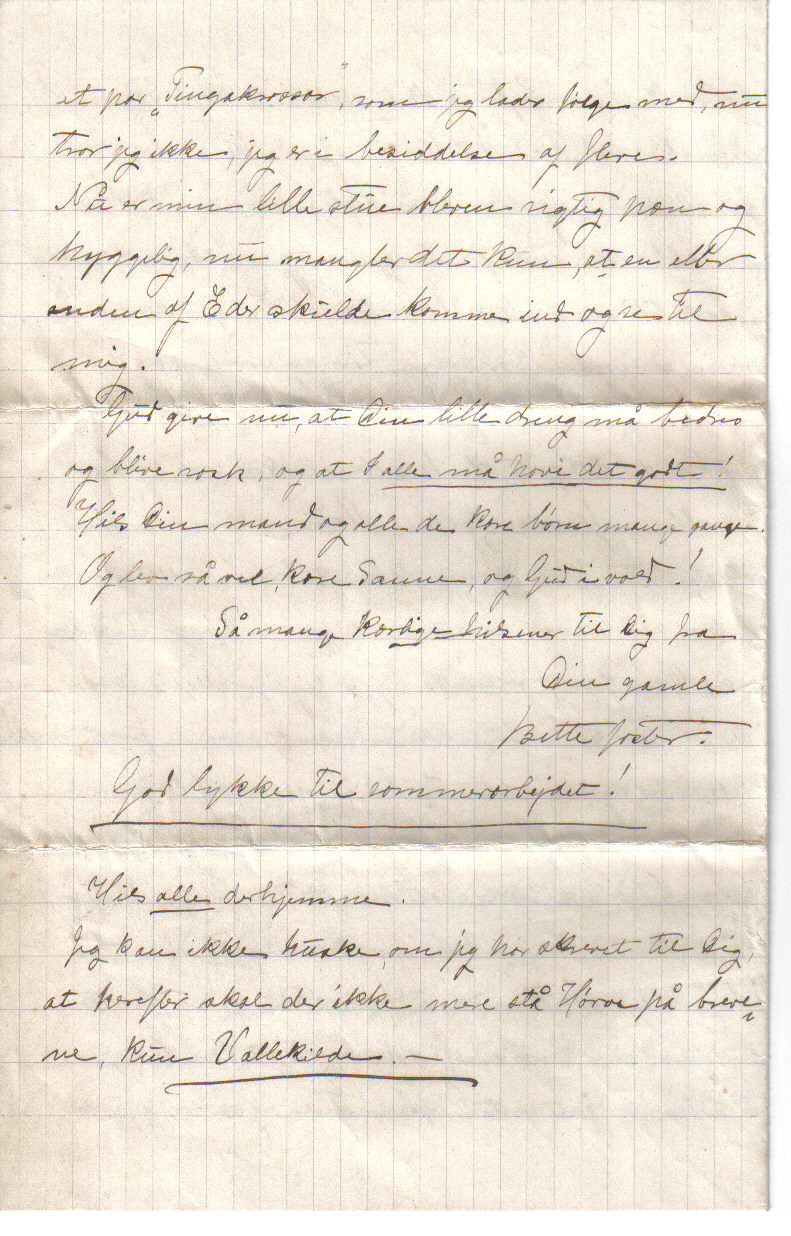 et par „Tingakrossar”, som jeg lader følge med, nu
tror jeg ikke, jeg er i besiddelse af flere.
Nå er min lille stue bleven rigtig pæn og
hyggelig, nu mangler det kun, at en eller
anden af Eder skulde komme ind og se til
mig.
Gud give nu, at Din lille dreng må bedres
og blive rask, og at I alle må have det godt!
Hils Din mand og alle de kære børn mange gange.
Og lev så vel, kære Sanne, og Gud i vold!
Så mange kærlige hilsener til Dig fra
Din gamle
Bitte
God lykke til sommerarbejdet!
Hils alle derhjemme.
Jeg kan ikke huske, om jeg har skrevet til Dig,
at herefter skal der ikke mere stå Hørve på breve-
ne, kun Vallekilde. —